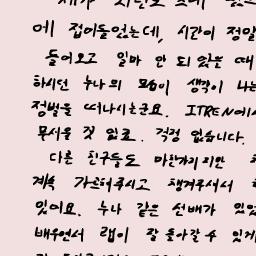 에 접어들었는데, 시간이 정말
들어오고 얼마 안 되었을 때
하시던 누나의 모습이 생각이 나는
정벌을 떠나시는군요. ITREN에서
무서울 것 없죠. 걱정 없습니다.
다른 친구들도 마찬가지지만
계속 가르쳐주시고 챙겨주셔서
있어요. 누나 같은 선배가 있었
배우면서 랩이 잘 돌아갈 수 있게